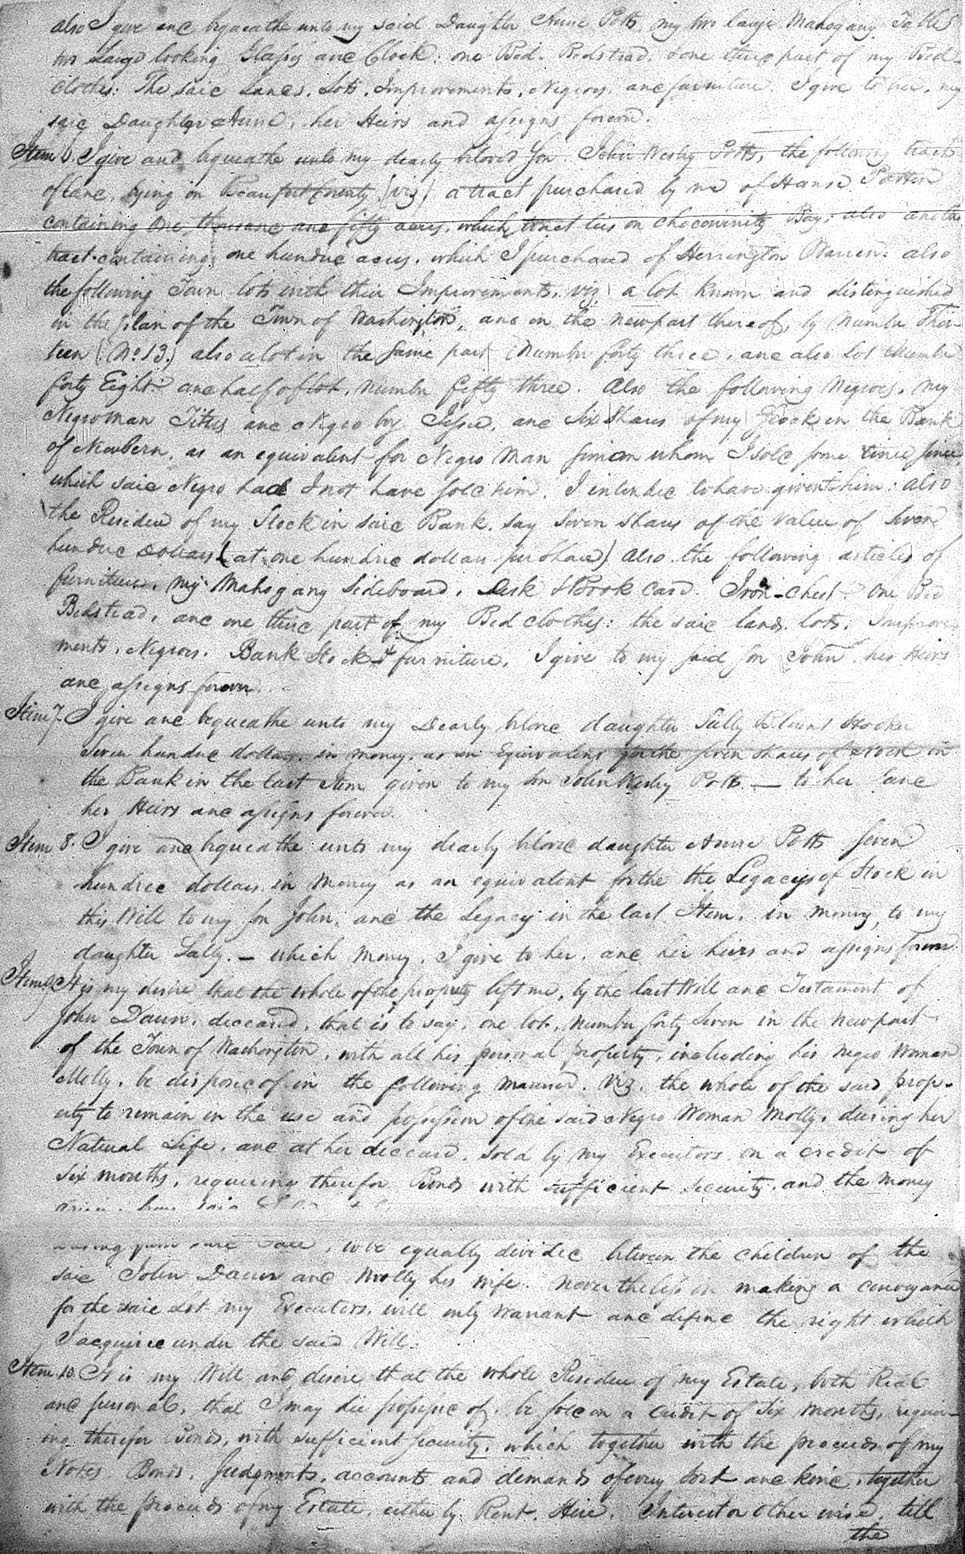 also I give and bequeathe unto my said Daughter Anne Potts, my two large Mahogany Tables
two Large looking Glasses and Clock; one Bed. Bedstead, & one third part of my Bed-
clothes: The said Lands, Lots, Improvements, Negroes, and furniture. I give to her, my
said Daughter Anne, her Heirs and assigns forever.
Item 6. I give and bequeathe unto my dearly beloved Son John Wesley Potts, the following tracts
of land, lying in Beaufort County (viz) a tract purchased by me of Hanse Patten
containing one thousand and fifty acres, which tract lies on Chocowinity Bay; also another
tract containing one hundred acres, which I purchased of Herrington Warren: also
the following Town lots with their Improvements, viz; a lot known and distinguished
in the plan of the Town of Washington, and in the newpart thereof, by Number Thir-
teen (No. 13.) also a lot in the same part (Number forty three, and also lot Number
forty Eight and half of lot, number fifty three. Also the following Negroes, my
Negro man Titus and Negro boy Jesse, and Six Shares of my Stock in the Bank
of Newbern, as an equivalent for Negro Man Simon whom I sold some time since
which said Negro had I not have sold him, I intended to have given to him: also
the Residue of my Stock in said Bank, say Seven shares of the value of Seven
hundred Dollars (at one hundred dollars per share) also the following articles of
furniture, my Mahogany Sideboard, Desk & Book Case. Iron-chest. one Bed
Bedstead, and one third part of my Bed clothes: the said lands, lots, Improve-
ments, Negroes, Bank Stock & furniture, I give to my said Son John his Heirs
and assigns forever.
Item 7. I give and bequeathe unto my Dearly beloved daughter Sally Hooker
Seven hundred dollars in money, as an Equivalent for the seven shares of stock in
the Bank in the last Item given to my son John Wesley Potts — to her and
her Heirs and assigns forever.
Item 8. I give and bequeathe unto my dearly beloved daughter Anne Potts Seven
hundred dollars in Money as an equivalent for the the Legacys of Stock in
this Will to my Son John, and the Legacy in the last Item, in money, to my
daughter Sally. — which money, I give to her, and her heirs and assigns forever
Item 9. It is my desire that the whole of the property left me, by the last Will and Testament of
John Daun, deceased, that is to say, one lot, number forty Seven in the newpart
of the Town of Washington, with all his personal property, including his Negro Woman
Molly, be disposed of in the following manner. Viz. the whole of the said prop-
erty to remain in the use and possession of the said Negro Woman Molly, during her
Natural Life, and at her deceased, sold by my Executors on a credit of
Six months, requiring therefor Bonds with sufficient security, and the money
arising from said Sale, to be equally divided between the children of the
said John Daun and Molly his wife. Nevertheless in making a conveyance
for the said Lot my Executors, will only warrant and define the right which
I acquired under the said Will.
Item 10. It is my Will and desire that the whole Residue of my Estate, both Real
and personal, that I may die possessed of, be sold on a credit of Six months, requir-
ing therefor Bonds, with sufficient security, which together with the proceeds of my
Notes, Bonds, Judgments, accounts and demands of every sort and kind, together
with the proceeds of my Estate, either by Rent, Hire, Interest or otherwise, till
the